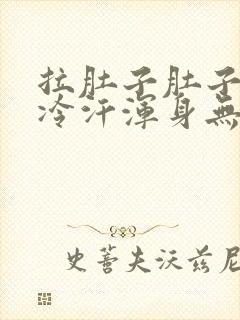 拉肚子肚子
冷汗渾身無
史蒂夫沃兹尼